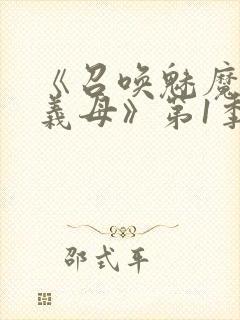 《召唤魅魔
義母》第1季
邵式平